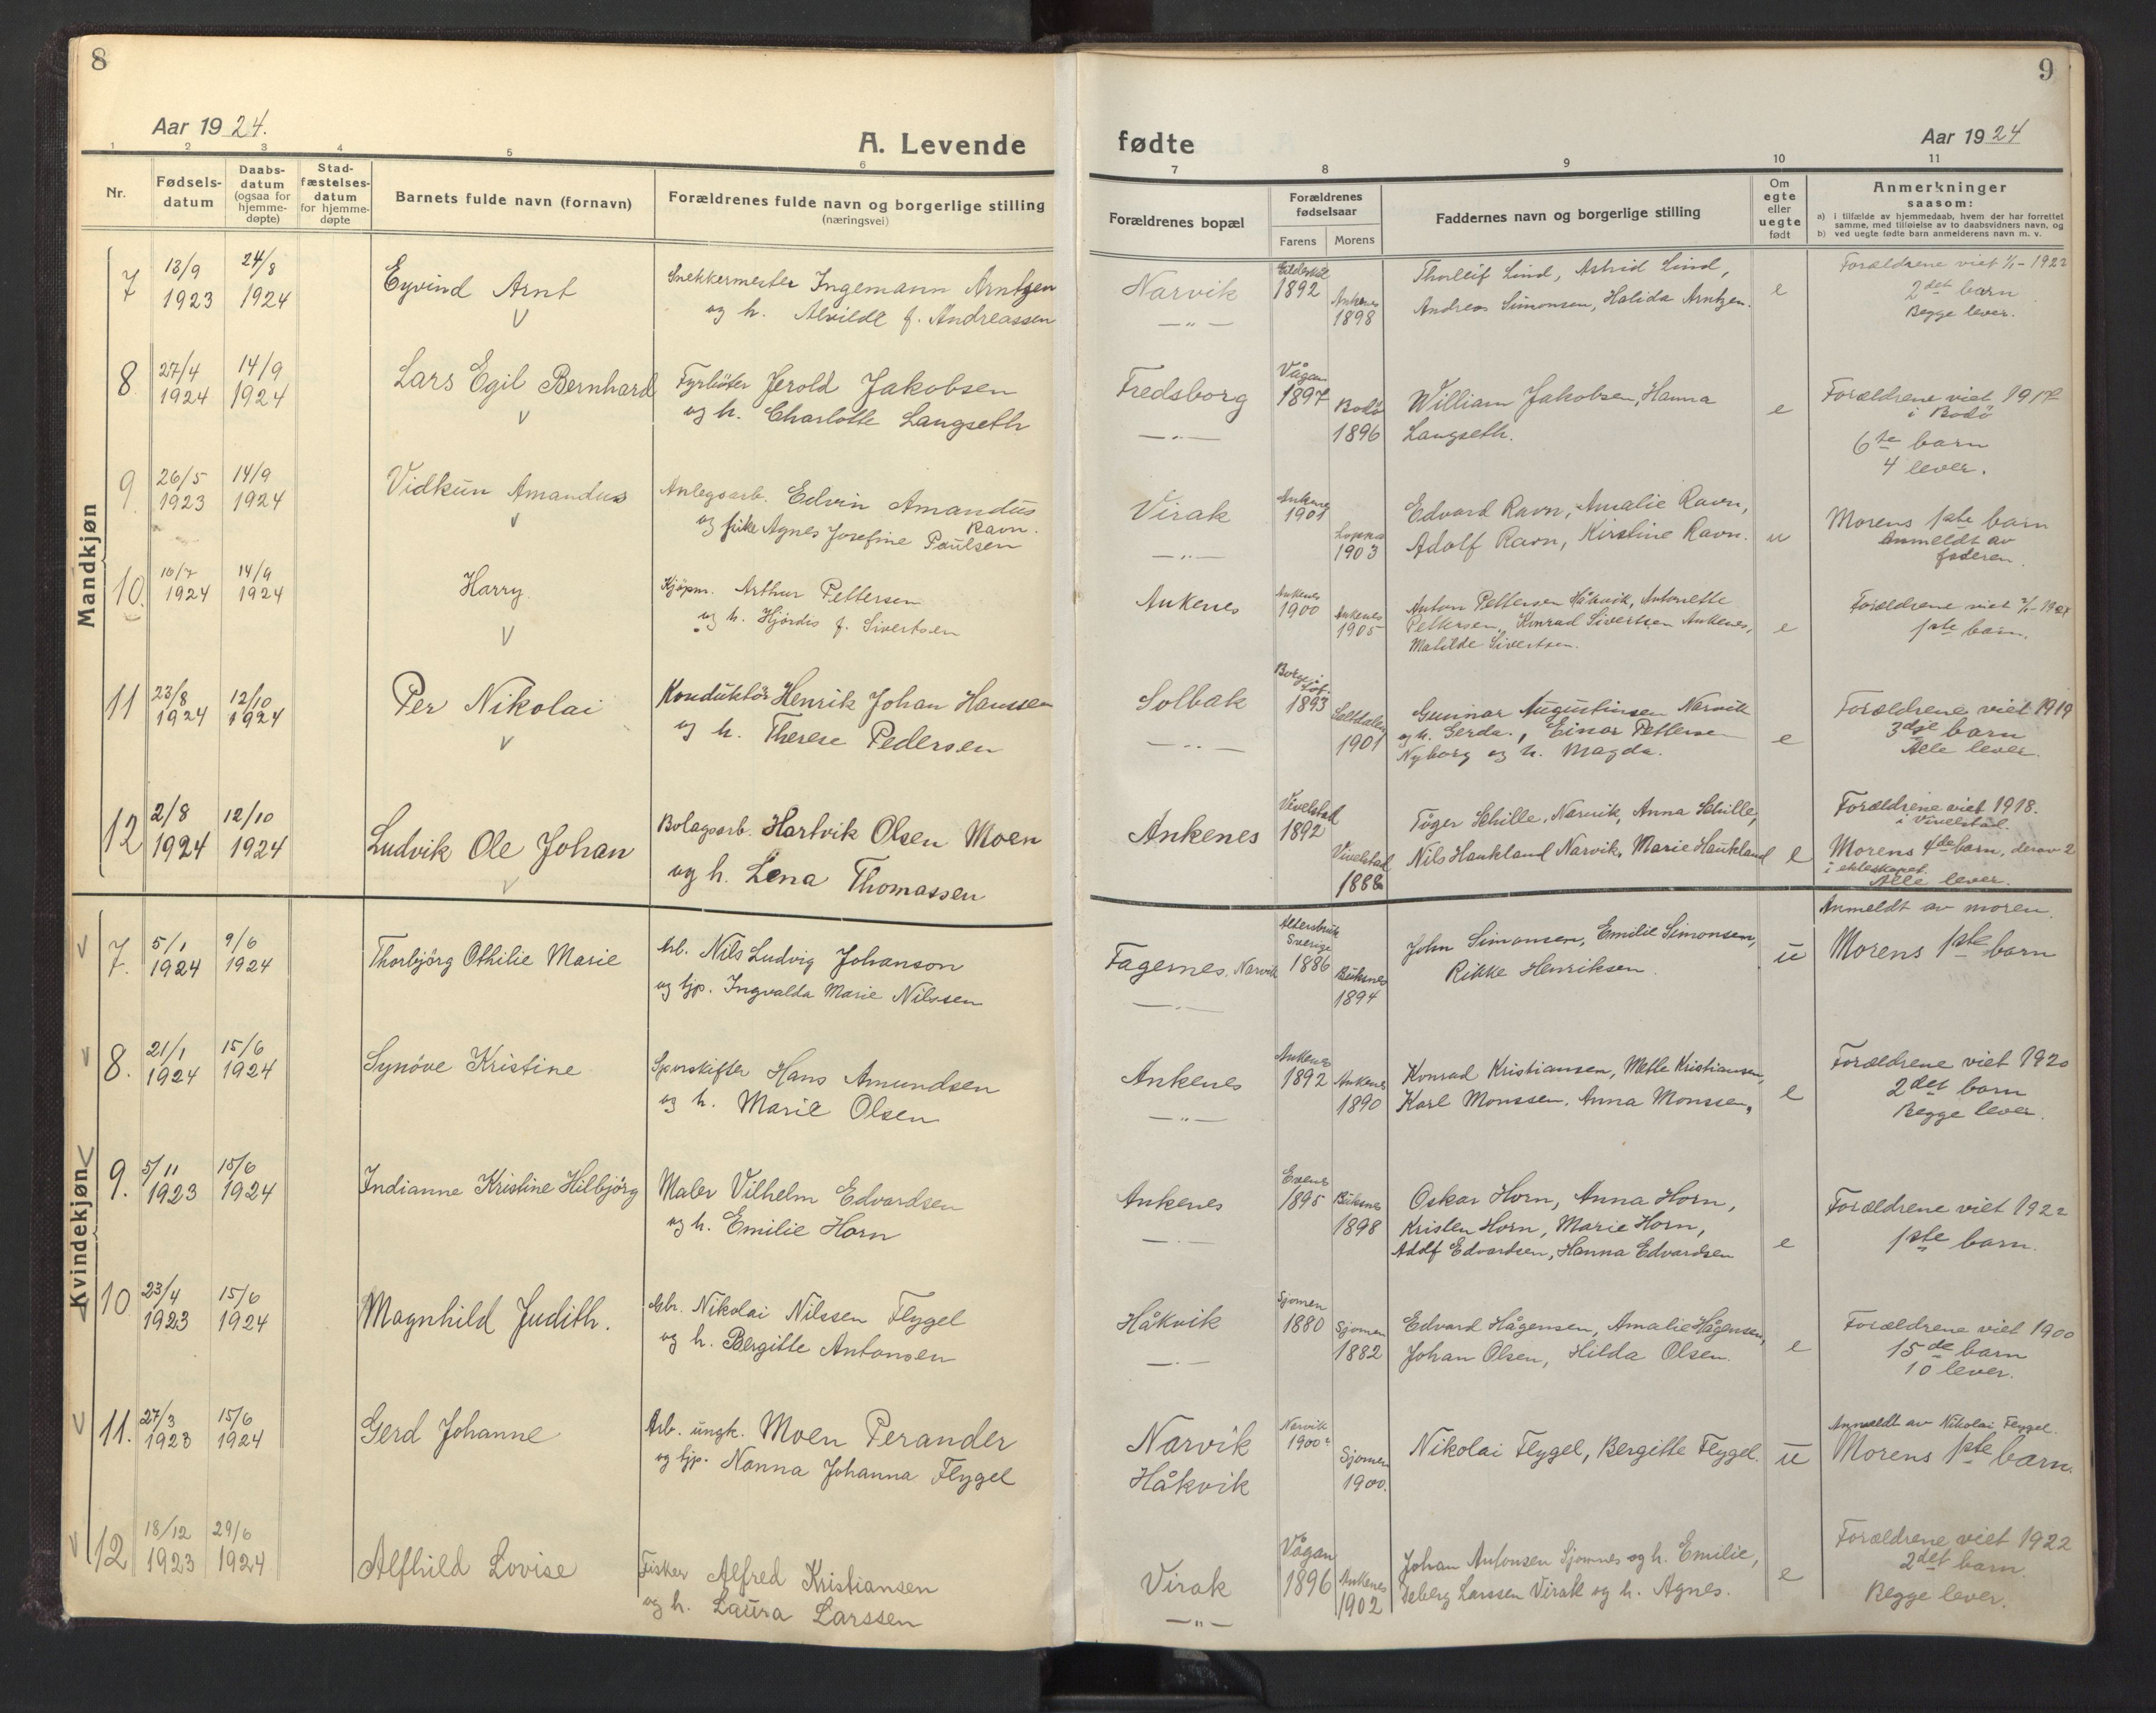 8
Aar 1924.
A. Levende
1 2 3 4 5 6
Nr.
Fødsels-
datum
Daabs-
datum
(ogsaa for
hjemme-
døpte)
Stad-
fæstelses-
datum
for hjemme-
døpte
Barnets fulde navn (fornavn)
Forældrenes fulde navn og borgerlige stilling
(næringsvei)
Mandkjøn
7 13/9 24/8 Eyvind Arnt Snekkermester Ingemann Arntzen
1923 1924 og h. Alvilde f. Andreassen
8 27/4 14/9 Lars Egil Bernhard Fyrböter Jerold Jakobsen
1924 1924 og h. Charlotte Langseth
9 26/5 14/9 Vidkun Amandus Anlegsarb. Edvin Amandus
1923 1924 Ravn.
og pike Agnes Josefine Paulsen
10. 10/7 14/9 Harry. Kjöpm. Arthur Pettersen
1924 1924 og h. Hjördis f. Sivertsen
11 23/8 12/10 Per Nikolai Konduktör Henrik Johan Hanssen
1924 1924 og h. Therese Pedersen
12 2/8 12/10 Ludvik Ole Johan Bolagsarb. Hartvik Olsen Moen
1924 1924 og h. Lena Thomassen
Kvindekjøn
7. 5/1 9/6 Thorbjörg Othilie Marie Arb. Nils Ludvig Johanson
1924 1924 og tjp. Ingvalda Marie Nilssen
8. 21/1 15/6 Synöve Kristine Sporskifter Hans Amundsen
1924 1924 og h. Marie Olsen
9. 5/11 15/6 Indianne Kristine Hilbjörg Maler Vilhelm Edvardsen
1923 1924 og h. Emilie Horn
10 23/4 15/6 Magnhild Judith. Nikolai Nilssen Flygel
1923 1924 og h. Bergitte Antonsen
11. 27/3 15/6 Gerd Johanne Arb. ungk. Moen Perander
1923 1924 og tjp. Nanna Johanna Flygel
12 18/12 29/6 Alfhild Lovise Fisker Alfred Kristiansen
1923 1924 og h. Laura Larssen
9
fødte
Aar 1924
7 8 9 10 11
Forældrenes bopæl
Forældrenes
fødselsaar
Farens Morens
Faddernes navn og borgerlige stilling
Om
egte
eller
uegte
født
Anmerkninger
saasom:
a) i tilfælde av hjemmedaab, hvem der har forrettet
samme, med tilføielse av to daabsvidners navn, og
b) ved uegte fødte barn anmelderens navn m. v.
Narvik 1892 Ankenes 1898 Thorleif Lind, Astrid Lind,
Andreas Simonsen, Halida Arntzen. e
Forældrene viet 1/1 - 1922
2det barn
Begge lever.
Fredsborg Vågan 1897 Bodö 1896 William Jakobsen, Hanna
Langseth. e
Forældrene viet 1917
i Bodö
6te barn
4 lever.
Virak Ankenes 1901 Loppa 1903 Edvard Ravn, Amalie Ravn,
Adolf Ravn, Kirstine Ravn. u
Morens 1ste barn
Anmeldt av
faderen.
Ankenes Ankenes 1900 Ankenes 1905 Anton Pettersen Håkvik, Antonette
Pettersen, Konrad Sivertsen Ankenes,
Matilde Sivertsen. e
Forældrene viet
1ste barn.
Solbak Borge i Lof. 1893 Saltdalen 1901 Gunnar Augustinsen Narvik
og h. Gerda., Einar Pettersen
Nyborg og h. Magda. e
Forældrene viet 1919
3dje barn
Alle lever.
Ankenes Vivelstad 1892 Vivelstad 1888 Töger Schille, Narvik, Anna Schille,
Nils Haukland Narvik, Marie Haukland e
Forældrene viet 1918.
i Vivelstad.
Morens 4de barn, derav 2
i ekteskapet.
Alle lever.
Anmeldt av moren.
Fagernes, Narvik Sverige 1886 Buksnes 1894 John Simonsen, Emilie Simonsen,
Rikke Henriksen. u
Morens 1ste barn
Ankenes Ankenes 1892 Ankenes 1890 Konrad Kristiansen, Mette Kristiansen,
Karl Monssen, Anna Monssen, e
Forældrene viet 1920
2det barn
Begge lever.
Ankenes Evenes 1895 Buksnes 1898 Oskar Horn, Anna Horn,
Kristen Horn, Marie Horn,
Adolf Edvardsen, Hanna Edvardsen e
Forældrene viet 1922
1ste barn.
Håkvik Sjomen 1880 Sjomen 1882 Edvard Hågensen, Amalie Hågensen,
Johan Olsen, Hilda Olsen. e
Forældrene viet 1900
15de barn
10 lever.
Narvik Narvik 1900 Sjomen 1900. Nikolai Flygel, Bergitte Flygel. u
Håkvik
Anmeldt av Nikolai Flygel.
Morens 1ste barn.
Virak Vågan 1896 Ankenes 1902 Johan Antonsen Sjomnes og h. Emilie,
Larssen Virak og h. Agnes. e
Forældrene viet 1922
2det barn.
Begge lever.